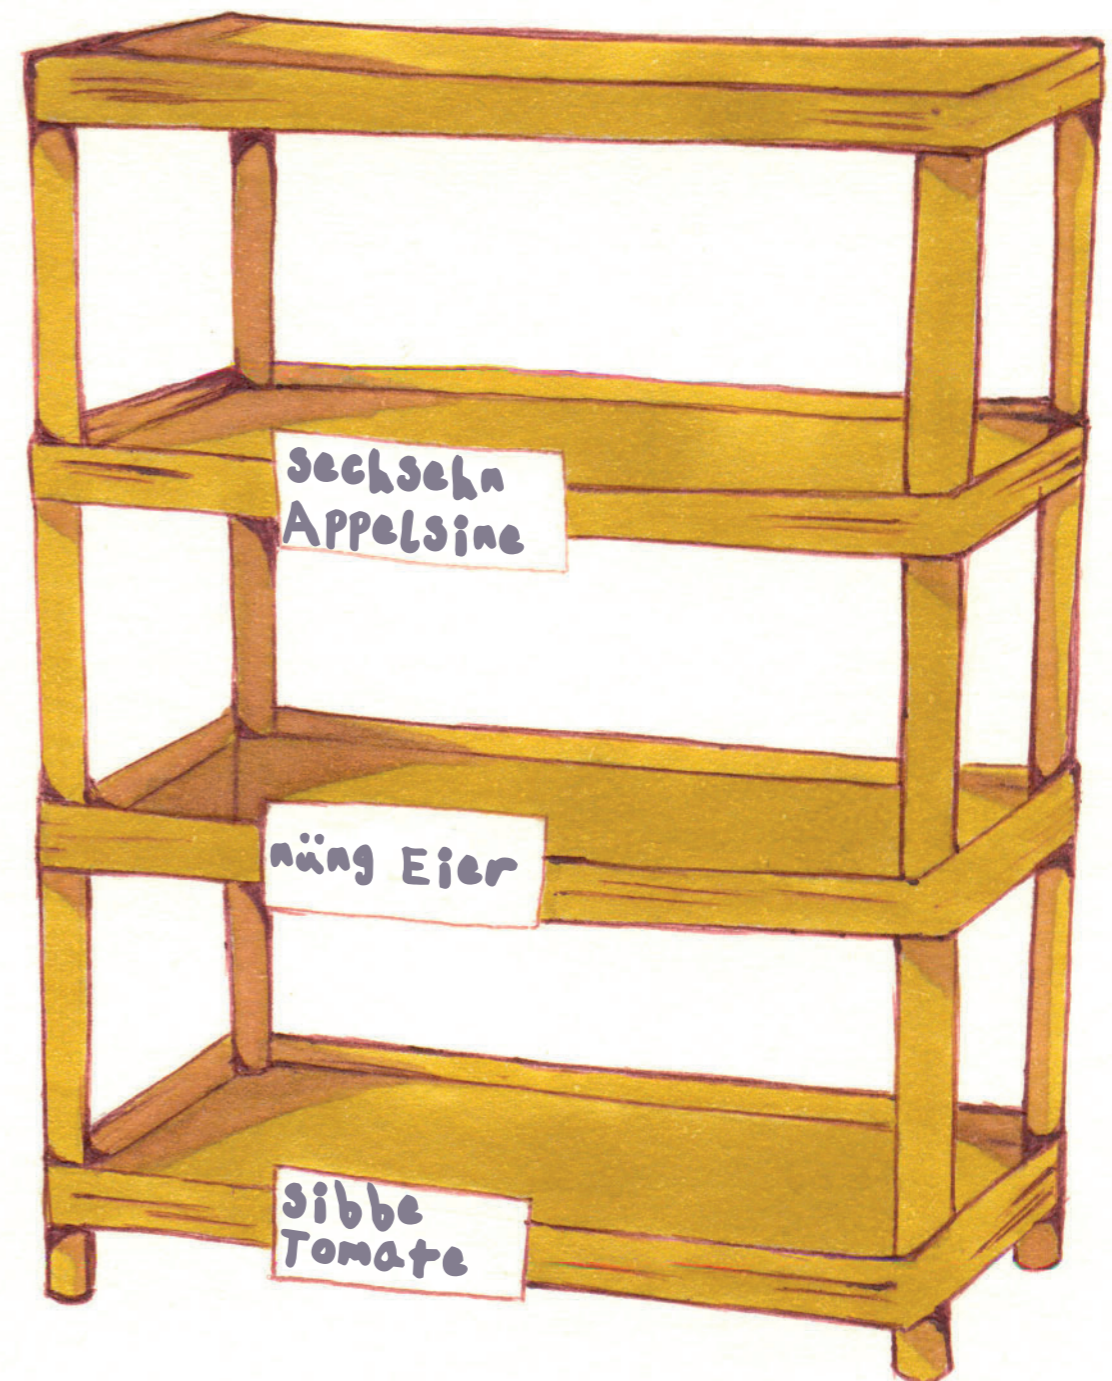 sechsehn
Appelsine
nüng Eier
sibbe
Tomate